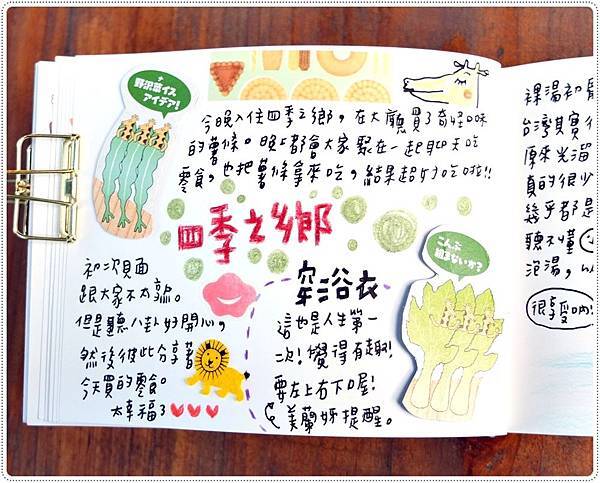 野沢菜イス
アイデア!
今晚入住四季之鄉,在大廳買了奇怪口味
的薯條。晚上都會大家聚在一起聊天吃
零食,也把薯條拿來吃,結果超好吃啦!!
四季之鄉
初次見面
跟大家不太熟。
但是聽八卦好開心,
然後彼此分享著
今天買的零食。
太幸福了
穿浴衣
這也是人生第一
次!覺得有趣!
要左上右下喔!
美蘭姊提醒。
こんぶ
組まないか?
裸湯初
台灣其實
原來光溜
真的很少
幾乎都是
聽不懂
泡湯,以
很享受喲!